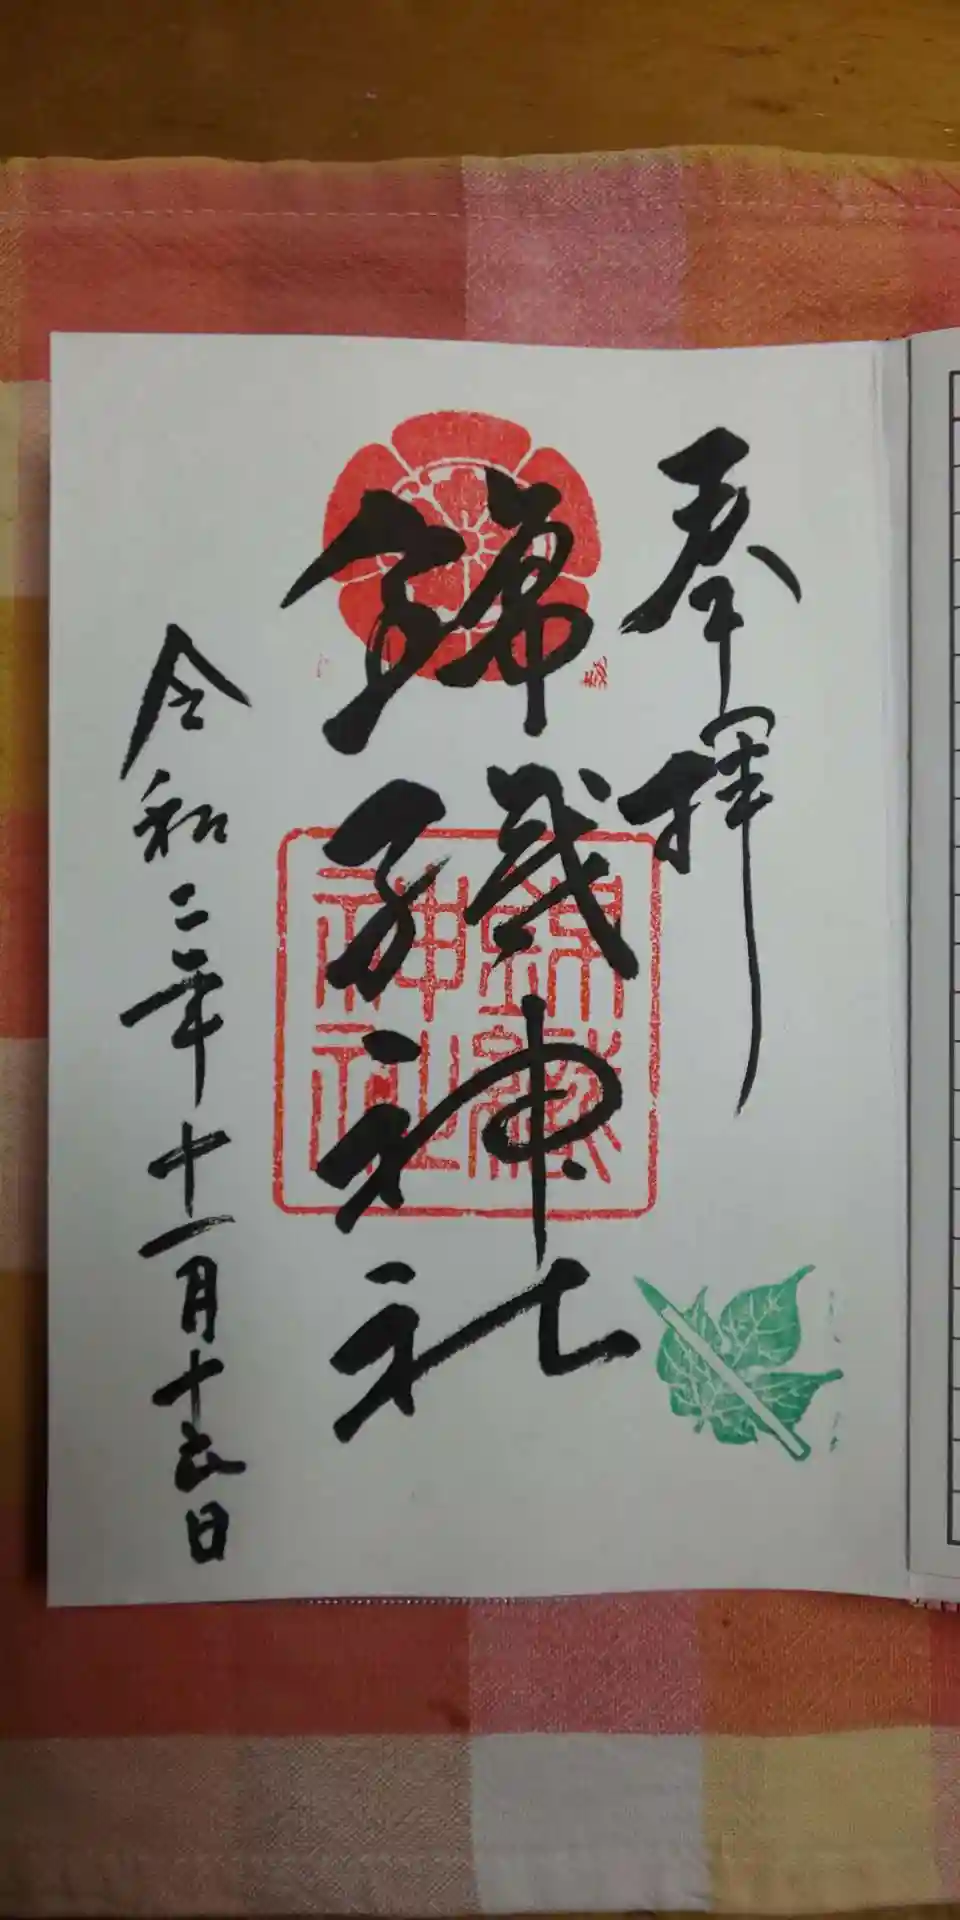 奉拝
錦織神社
錦織神社
令和二年十一月十五日